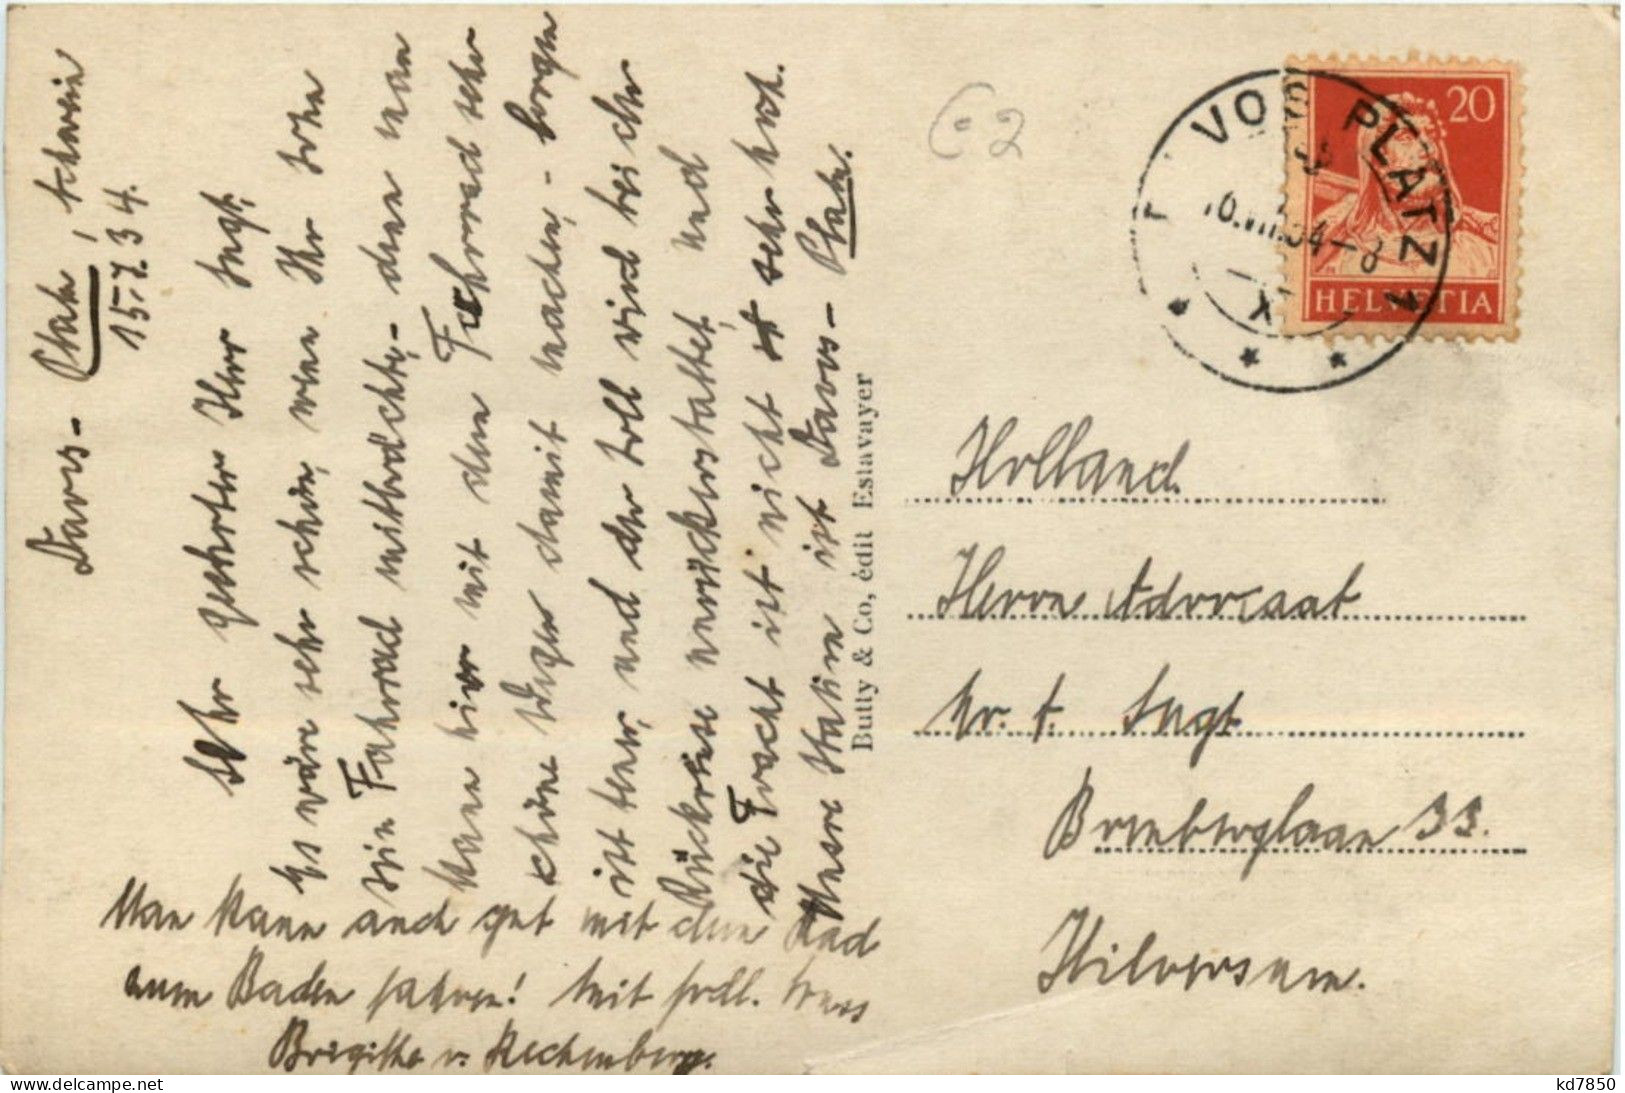 Davos-Platz, Schweiz
15.7.34.
Sehr geehrter Herr Sugt,
Es wäre sehr schön, wenn Ihr Sohn
sein Fahrrad mitbrächte, denn man
kann hier mit dem Fahrrad sehr
schöne Wege damit machen. Sorgen
ist teuer, und der Zoll wird bei der
Rückreise zurückerstattet, und
die Fracht ist nicht sehr hoch.
Unsere Station ist Davos-Platz.
Man kann auch gut mit dem Rad
zum Baden fahren! Mit frdl. Gruss
Brigitte v. Rechenberg.
Butty & Co, édit Estavayer
C-2
VOS PLATZ
VII.34-8
20
HELVETIA
Holland
Herrn Advocaat
Mr. t. Sugt
Bremberglaan 33.
Hilversum.
kd7850